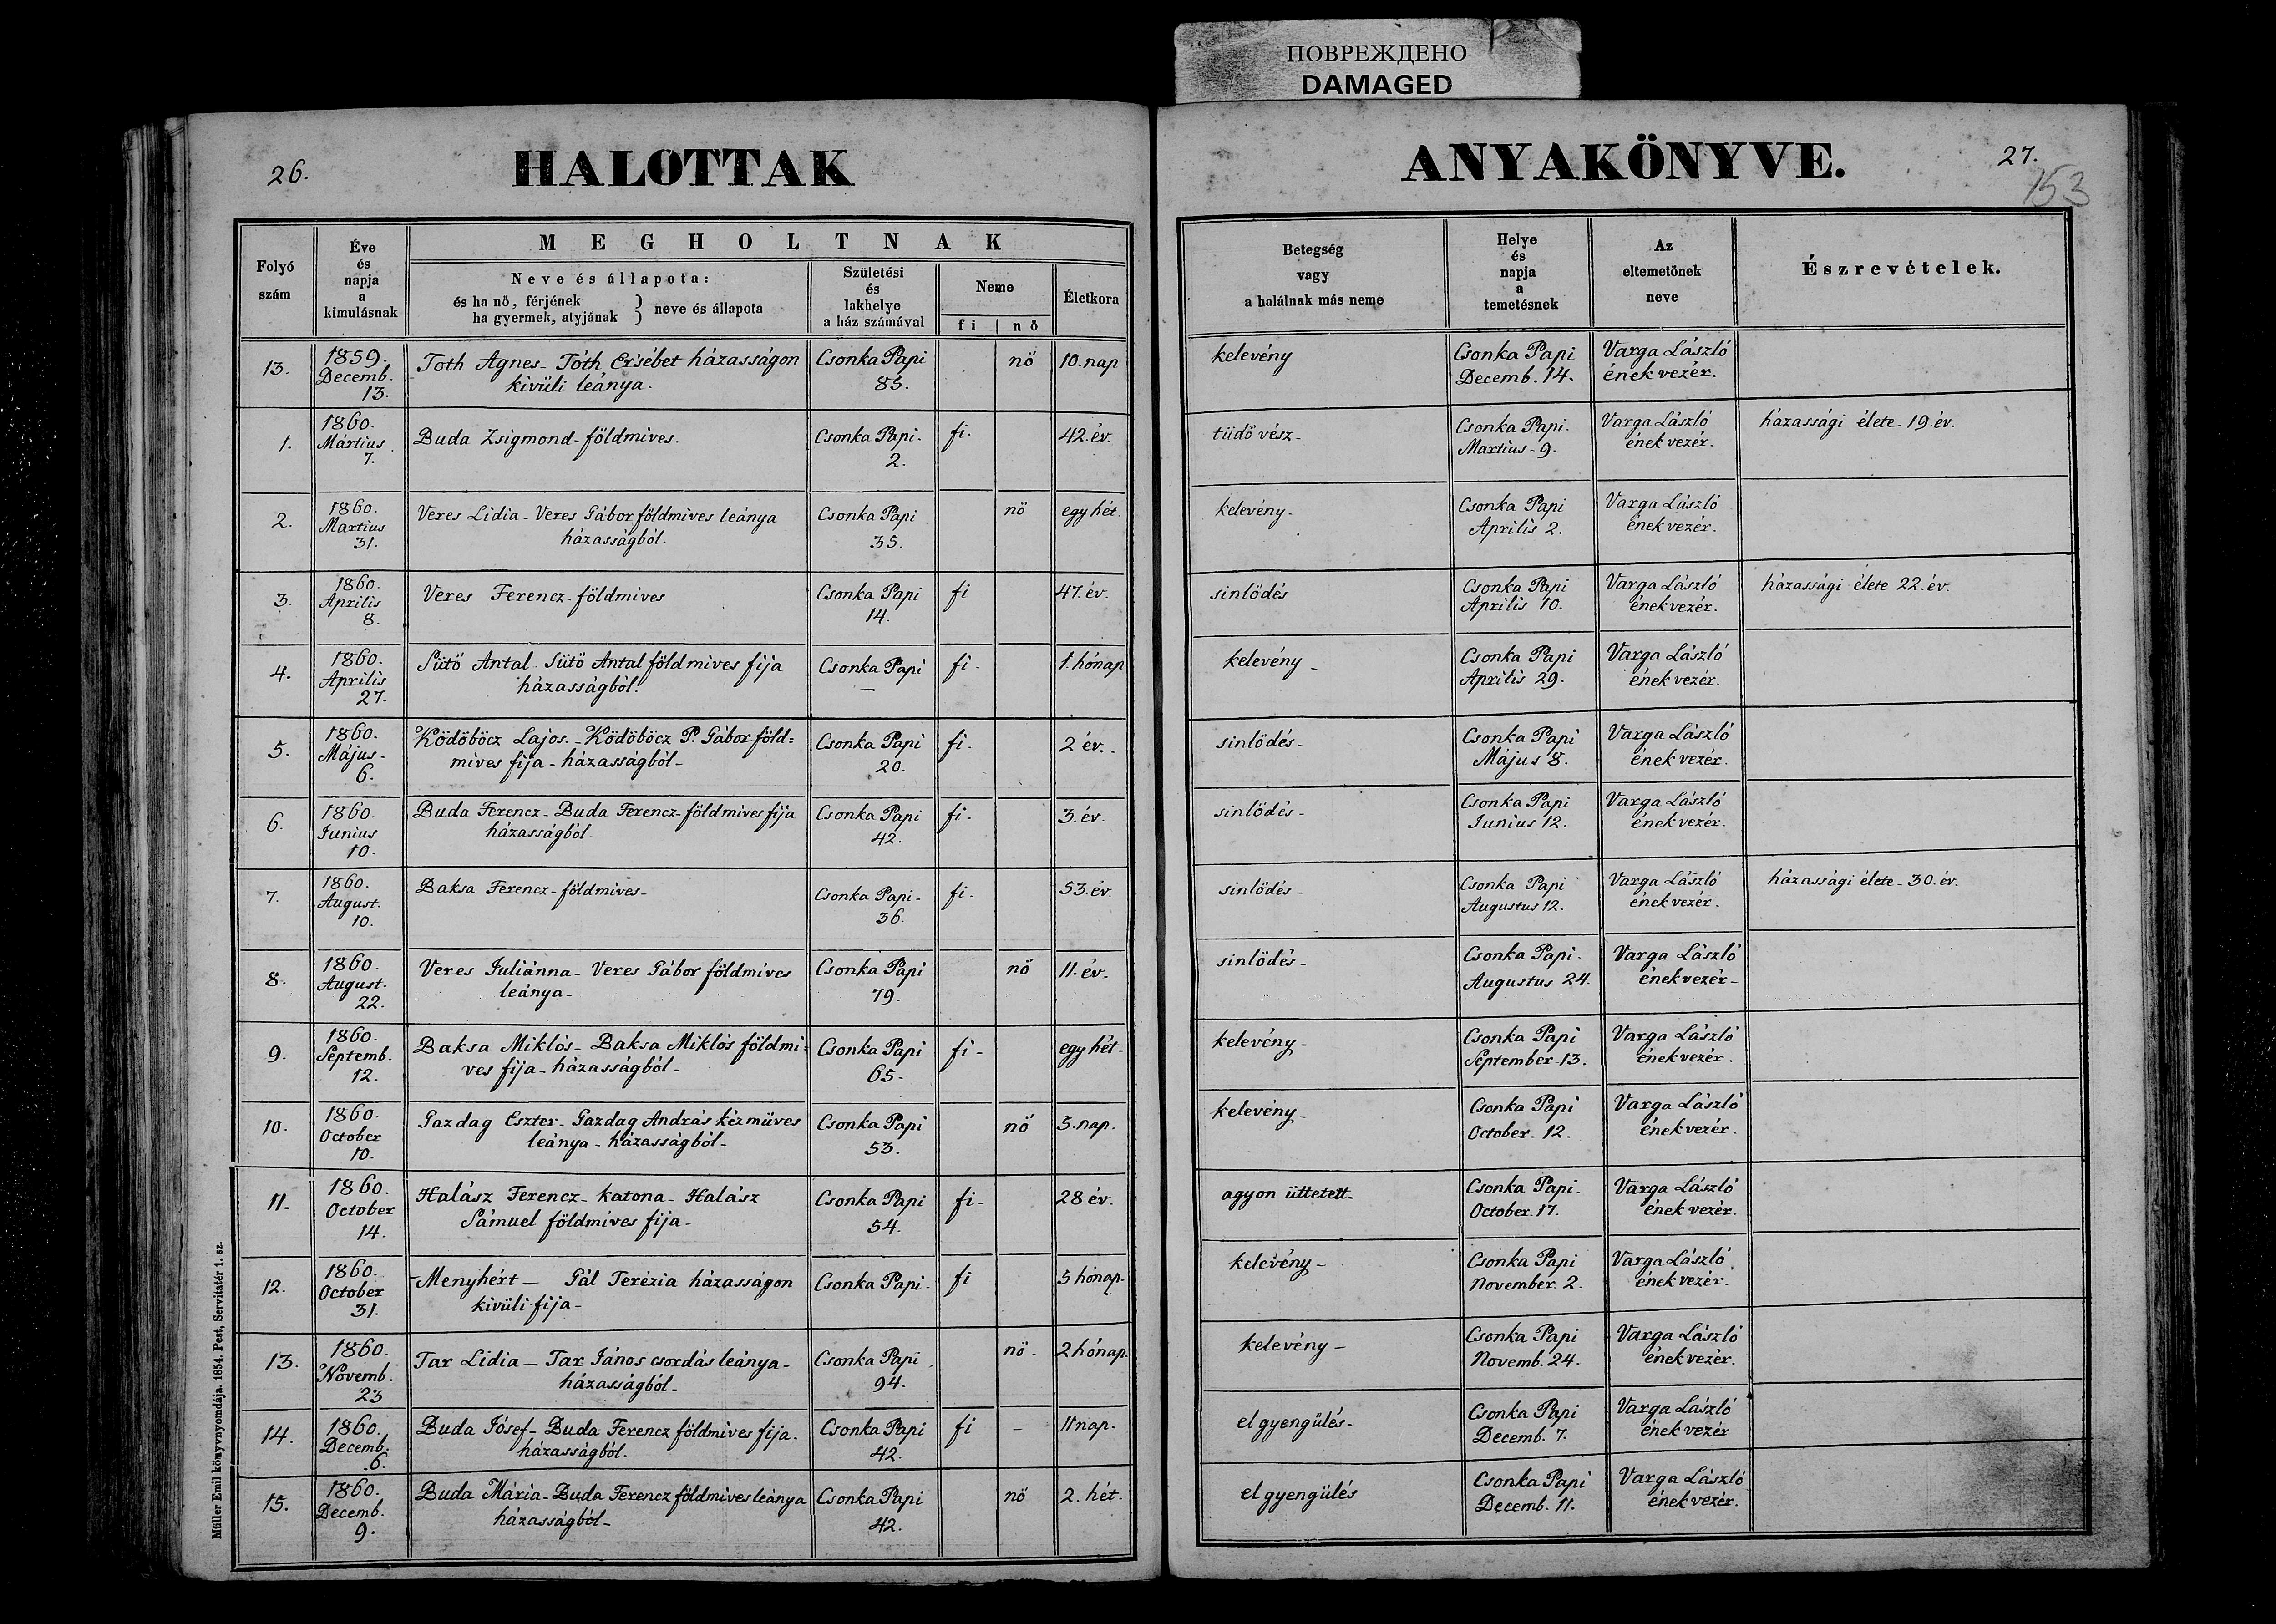 ПОВРЕЖДЕНО
DAMAGED
26.
HALOTTAK
Folyó
szám
Éve
és
napja
a
kimulásnak
MEGHOLTNAK
Neve és állapota:
és ha nö, férjének
ha gyermek, atyjának } neve és állapota
Születési
és
lakhelye
a ház számával
Neme
fi | nö
Életkora
13.
1859.
Decemb.
13.
Toth Agnes - Tóth Ersébet házasságon
kivüli leánya.
Csonka Papi
85.
nö
10. nap
1.
1860.
Mártius
7.
Buda Zsigmond - földmives.
Csonka Papi.
2.
fi.
42. év.
2.
1860.
Martius
31.
Veres Lidia - Veres Gábor földmives leánya
házasságból.
Csonka Papi
35.
nö
egy hét.
3.
1860.
Április
8.
Veres Ferencz - földmives
Csonka Papi
14.
fi
47. év.
4.
1860.
Április
27.
Sütö Antal - Sütö Antal földmives fija
házasságból.
Csonka Papi
—
fi -
1. hónap
5.
1860.
Május -
6.
Ködöböcz Lajos. - Ködöböcz P. Gábor föld=
mives fija - házasságból -
Csonka Papi
20.
fi -
2 év. -
6.
1860.
Junius
10.
Buda Ferencz - Buda Ferencz földmives fija
házasságból -
Csonka Papi
42.
fi -
3. év.
7.
1860.
August.
10.
Baksa Ferencz - földmives -
Csonka Papi -
36.
fi -
53. év.
8.
1860.
August.
22.
Veres Juliánna - Veres Gábor földmíves
leánya -
Csonka Papi
79.
nö
11. év.
9.
1860.
Septemb.
12.
Baksa Miklós - Baksa Miklós földmi=
ves fija - házasságból -
Csonka Papi
65 -
fi -
egy hét -
10.
1860.
October
10.
Gazdag Eszter - Gazdag András kézmüves
leánya - házasságból -
Csonka Papi
53.
nö
5. nap.
11.
1860.
October
14.
Halász Ferencz - katona - Halász
Sámuel földmíves fija -
Csonka Papi
54.
fi -
28 év.
12.
1860.
October
31.
- Menyhért — Gál Terézia házasságon
kivüli fija -
Csonka Papi.
fi
5 hónap.
13.
1860.
Novemb.
23
Tar Lidia — Tar János csordás leánya -
házasságból -
Csonka Papi
94.
nö -
2 hónap.
14.
1860.
Decemb.
6.
Buda Jósef - Buda Ferencz földmives fija.
házasságból.
Csonka Papi
42.
fi
-
11 nap.
15.
1860.
Decemb.
9.
Buda Mária - Buda Ferencz földmives leánya
házasságból -
Csonka Papi
42.
nö
2. hét.
Müller Emil könyvnyomdája. 1854. Pest, Servitatér 1. sz.
ANYAKÖNYVE.
27.
153
Betegség
vagy
a halálnak más neme
Helye
és
napja
a
temetésnek
Az
eltemetönek
neve
Észrevételek.
kelevény
Csonka Papi
Decemb. 14.
Varga László
ének vezér.
tüdö vész -
Csonka Papi.
Martius - 9.
Varga László
ének vezér.
házassági élete - 19. év.
kelevény -
Csonka Papi
Aprilis 2.
Varga László
ének vezér.
sinlödés
Csonka Papi
Aprilis 10.
Varga László
ének vezér.
házassági élete 22. év.
kelevény -
Csonka Papi
Aprilis 29.
Varga László
ének vezér.
sinlödés -
Csonka Papi
Május 8.
Varga László
ének vezér.
sinlödés -
Csonka Papi
Junius 12.
Varga László
ének vezér.
sinlödés -
Csonka Papi
Augustus 12.
Varga László
ének vezér.
házassági élete - 30. év.
sinlödés -
Csonka Papi.
Augustus 24.
Varga László
ének vezér -
kelevény -
Csonka Papi
September 13.
Varga László
ének vezér.
kelevény -
Csonka Papi
October. 12.
Varga László
ének vezér.
agyon üttetett -
Csonka Papi.
October. 17.
Varga László
ének vezér.
kelevény -
Csonka Papi
November. 2.
Varga László
ének vezér.
kelevény -
Csonka Papi
Novemb. 24.
Varga László
ének vezér.
el gyengülés -
Csonka Papi
Decemb. 7.
Varga László
ének vezér
el gyengülés
Csonka Papi
Decemb. 11.
Varga László
ének vezér.